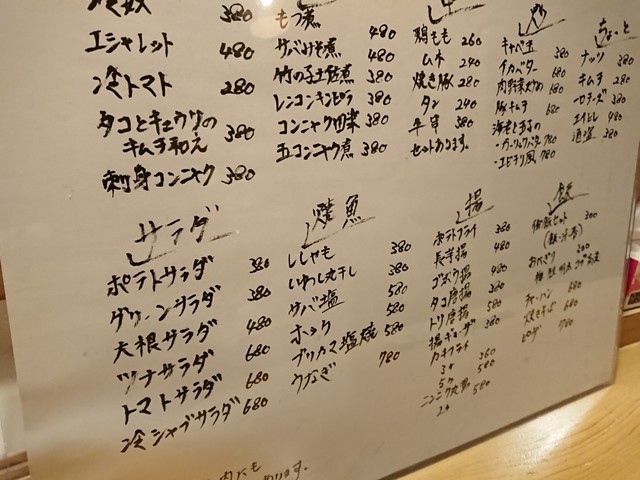 冷奴 380
エシャレット 480
冷トマト 280
タコとキュウリの
キムチ和え 380
刺身コンニャク 380
もつ煮
サバみそ煮 480
竹の子土佐煮 380
レンコンキンピラ 380
コンニャク田楽 380
玉コンニャク煮 380
鶏もも 260
ムネ 240
焼き豚 280
タン 240
牛串 380
セットあります。
キャベ玉
イカバター 380
肉野菜炒め 680
豚キムチ 680
海老と玉子の
・ガーリックバター 780
・エビチリ風 780
ちょっと
ナッツ 380
キムチ 280
エイヒレ 480
サラダ
ポテトサラダ 380
グリーンサラダ 380
大根サラダ 480
ツナサラダ 680
トマトサラダ 680
冷シャブサラダ 680
焼魚
ししゃも 380
いわし丸干し 380
サバ塩 580
ホッケ 580
ブリカマ塩焼 580
ウナギ 780
揚
ポテトフライ 380
長芋揚 480
ゴボウ揚 480
タコ唐揚 580
トリ唐揚 580
揚ギョーザ 380
カキフライ
3ヶ 360
5ヶ 580
ニンニク丸揚 580
2ヶ
飯
御飯セット 300
おにぎり 200
チャーハン 680
焼きそば 680
ピザ 780